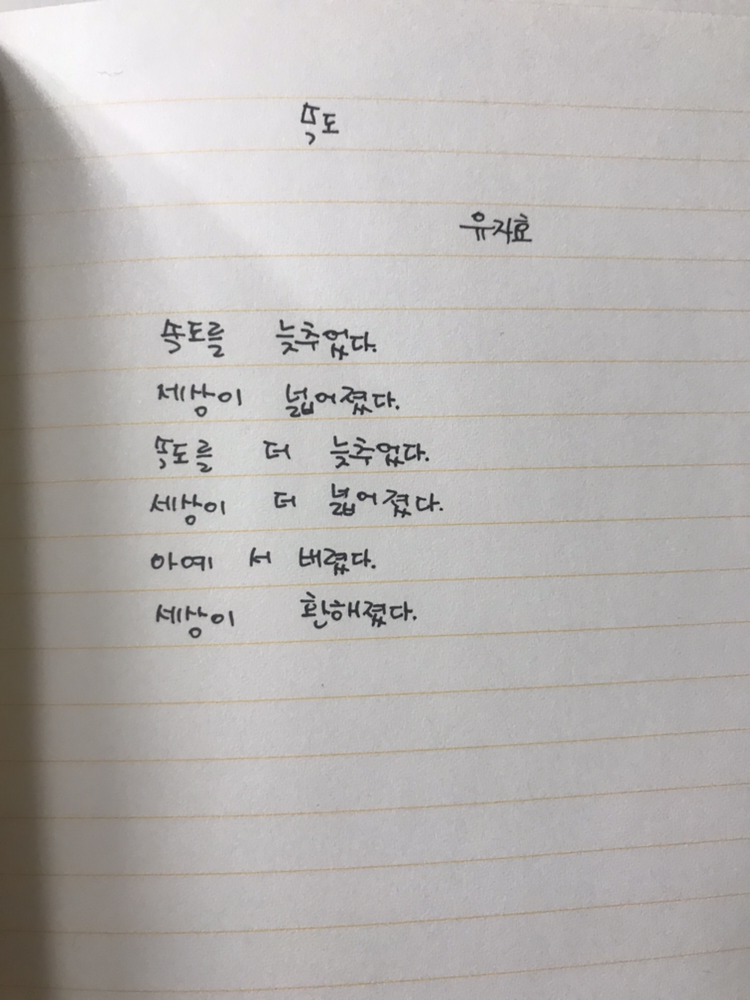 속도
유자효
속도를 늦추었다.
세상이 넓어졌다.
속도를 더 늦추었다.
세상이 더 넓어졌다.
아예 서 버렸다.
세상이 환해졌다.